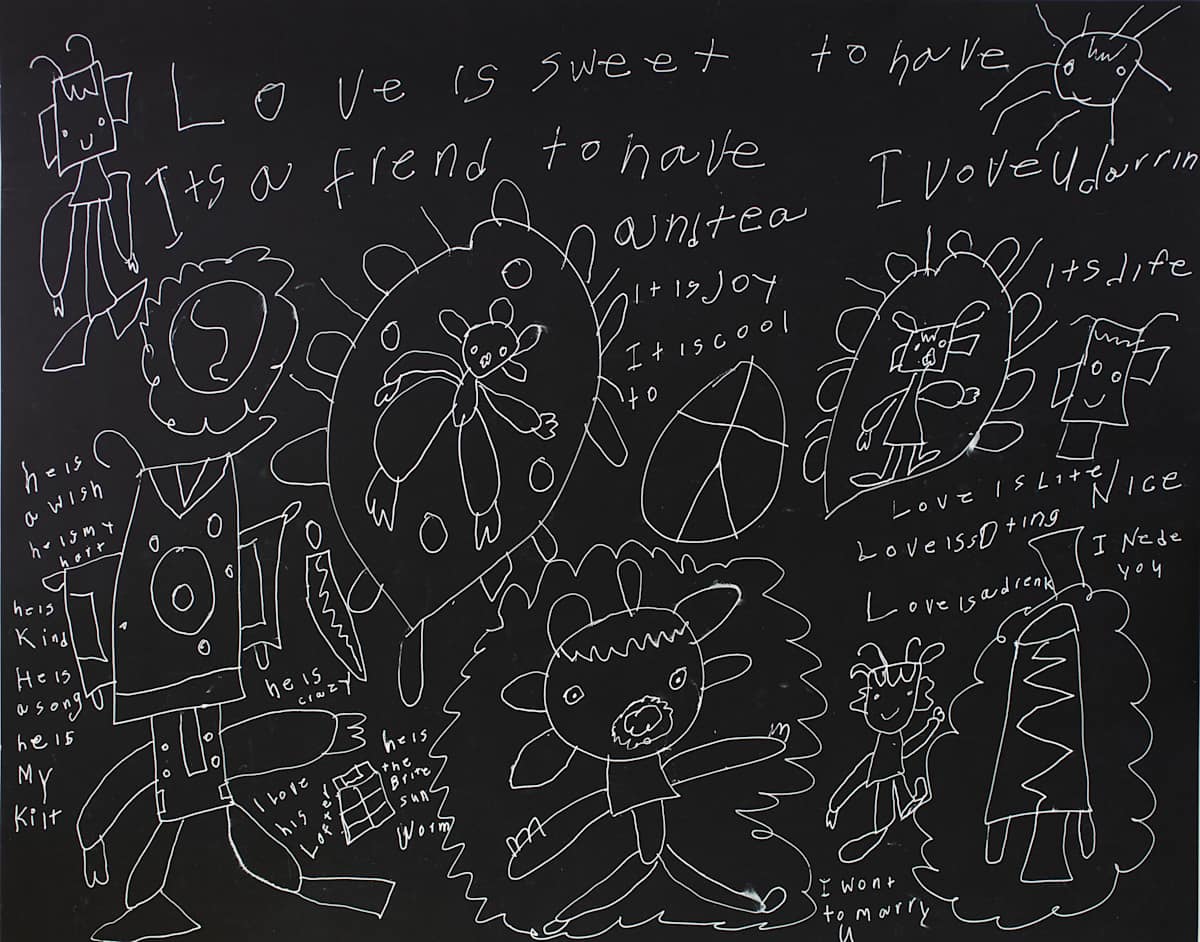 Love is sweet to have
Its a frend to have
I vove U darrin
a unitea
it is Joy
Its Life
It is cool
to
he is
a wish
he is my
hart
Love is Lite
Nice
Love iss
I Nede
you
Love is a drenk
he is
Kind
He is
a song
he is
My
Kilt
he is
crazy
he is
the
Brite
sun
Worm
I Love
his
I wont
to marry
u